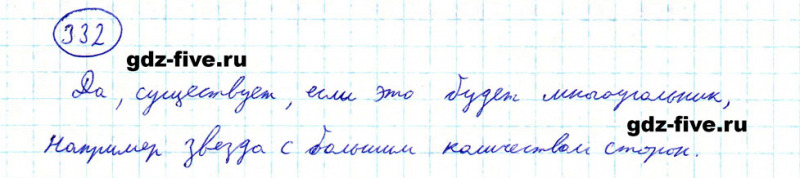 332
gdz-five.ru
Да, существует, если это будет многоугольник,
gdz-five.ru
Например звезда с большим количеством сторон.